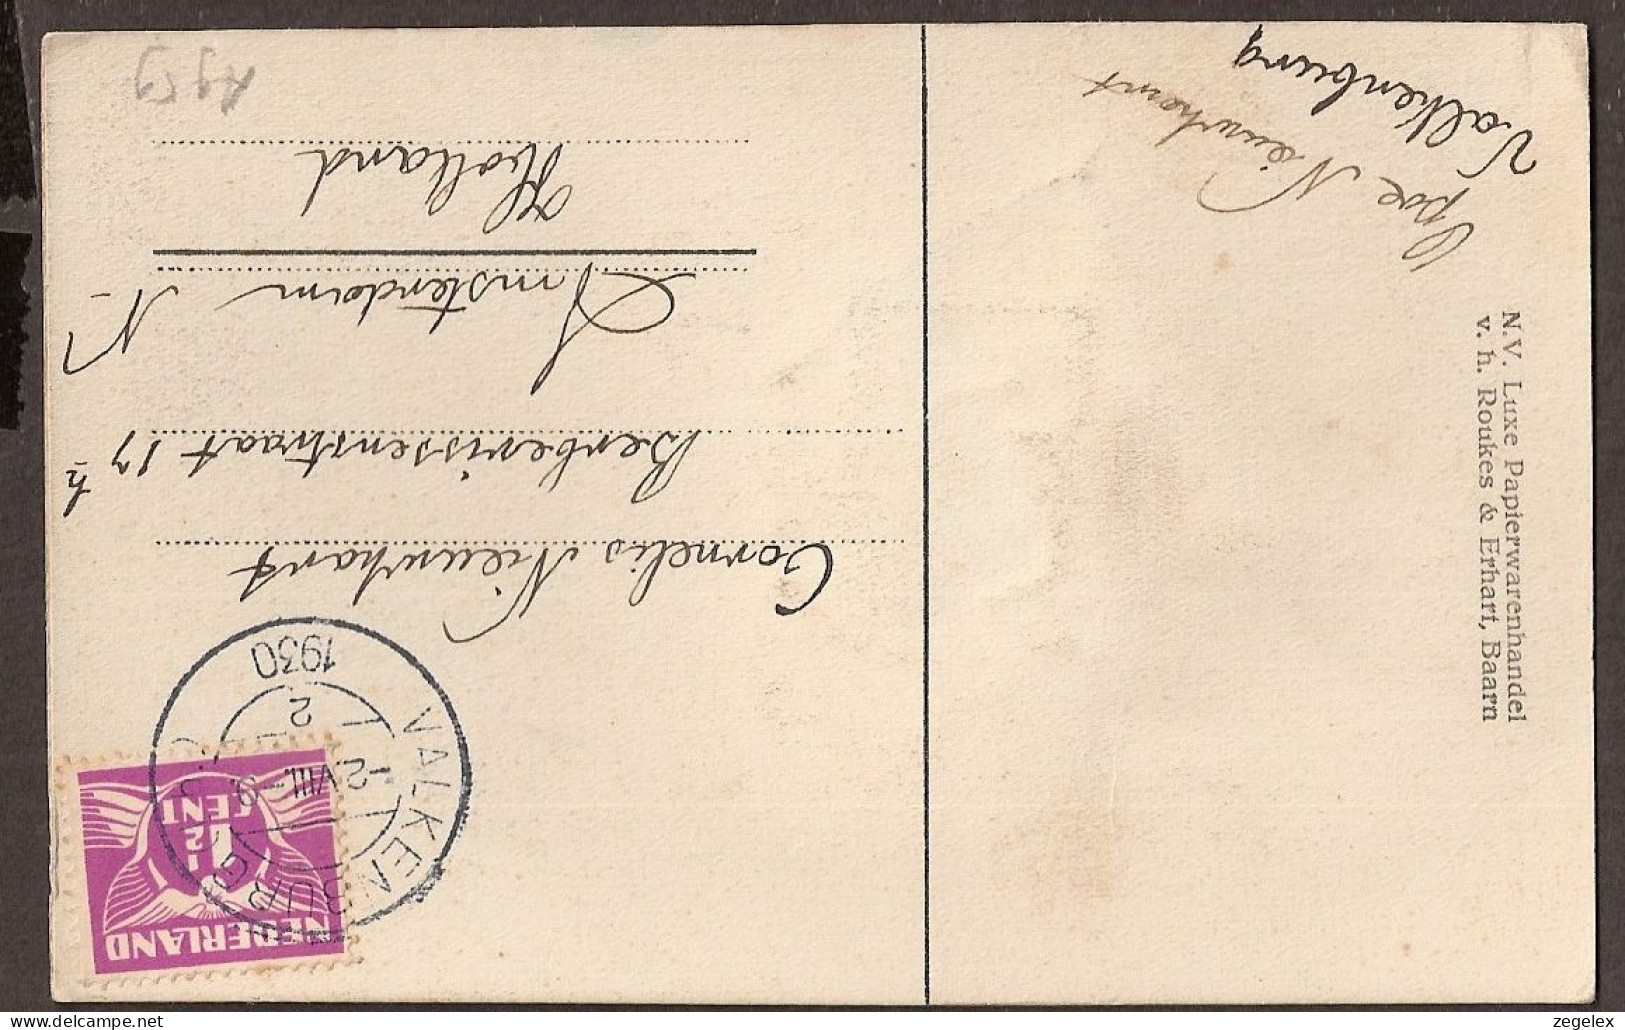 NEDERLAND
1½
CENT
VALKENBURG
2.VIII.-9
2
1930
Cornelis Nieuwhart
Berberissenstraat 17 h
Amsterdam N-
Holland
Opoe Nieuwhart
Valkenburg
N.V. Luxe Papierwarenhandel
v. h. Roukes & Erhart, Baarn
Ag59
zegelex
delcampe.net